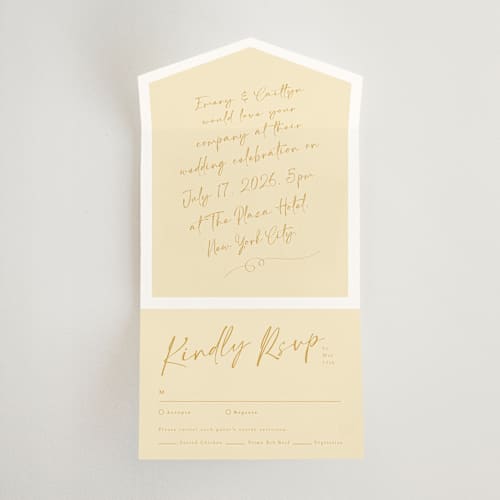 Emery & Caitlyn
would love your
company at their
wedding celebration on
July 17, 2026, 5pm
at The Plaza Hotel,
New York City
Kindly Rsvp
by
May
M
Accepts Regrets
Please initial each guest's entrée selection.
Seared Chicken Prime Rib Beef Vegetarian